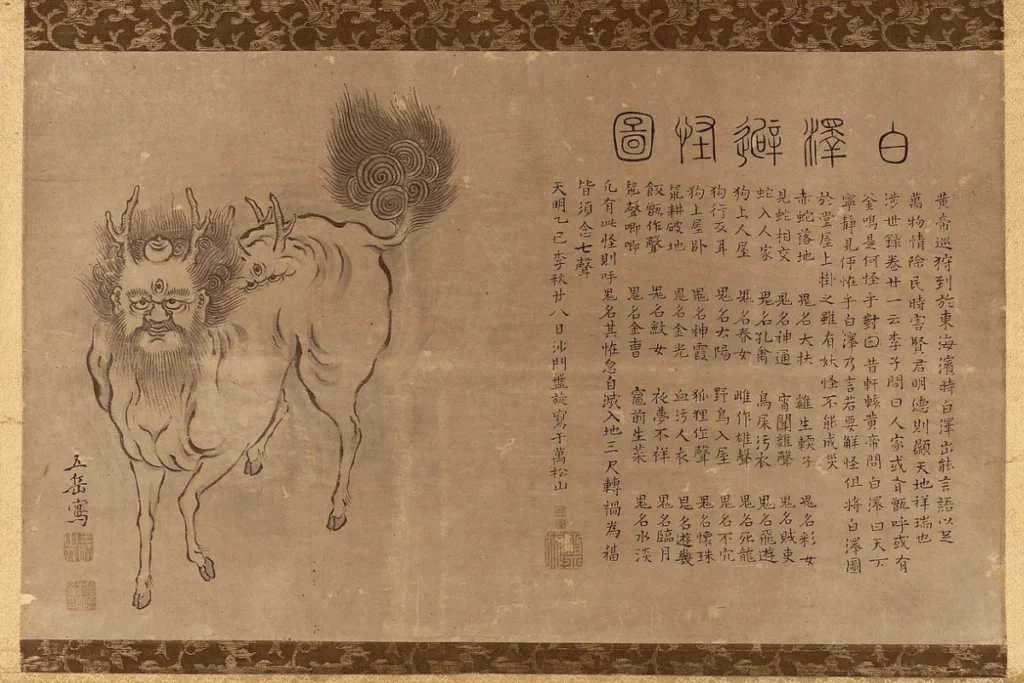 白澤避怪圖
黄帝巡狩到於東海濱時白澤出能言語以足
萬物情除民時害賢君明德則顯天地祥瑞也
涉世録卷廿一云李子問曰人家或有甑呼或有
釜鳴是何怪乎對曰昔軒轅黄帝問白澤曰天下
寧静見何怪乎白澤乃言若要解怪但將白澤圖
於堂屋上掛之雖有妖怪不能成災
赤蛇落地 鬼名大扶 雞生輭子 鬼名彩女
見蛇相交 鬼名神通 宵聞雞聲 鬼名賊吏
蛇入人家 鬼名孔禽 鳥屎污衣 鬼名飛遊
狗上人屋 鬼名春女 雌作雄聲 鬼名死龍
狗行反耳 鬼名太陽 野鳥入屋 鬼名不宂
狗上屋卧 鬼名神霞 狐狸作聲 鬼名懷珠
鼠耕破地 鬼名金光 血污人衣 鬼名遊幾
飯甑作聲 鬼名斂女 衣夢不祥 鬼名臨月
鼠聲唧唧 鬼名金曹 竈前生菜 鬼名水淡
凡有此怪則呼鬼名其怪忽自滅入地三尺轉禍為福
皆須念七聲
天明乙巳季秋廿八日沙門盤旋寫于萬松山
五岳寫